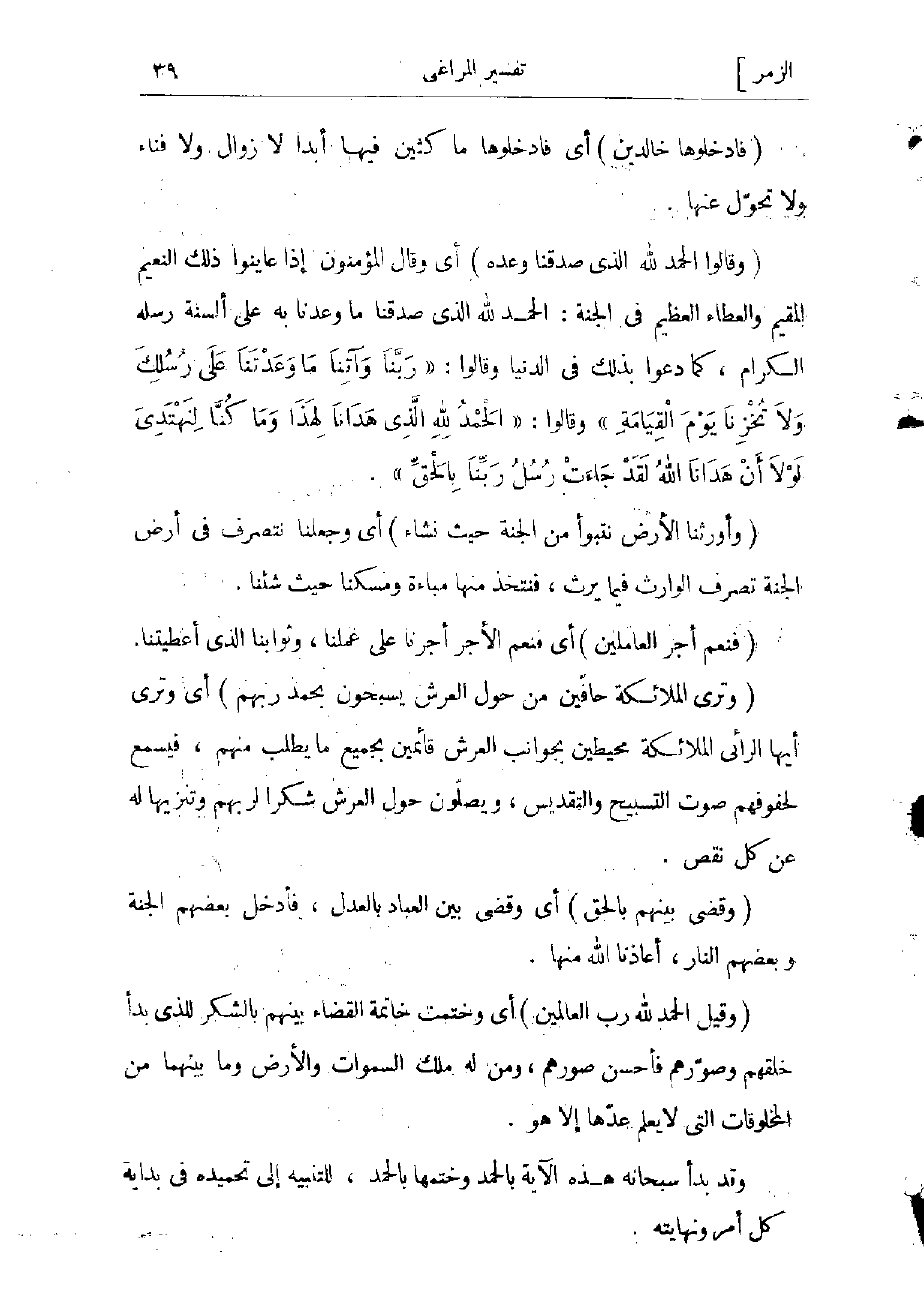 الزمر ] تفسير المراغى ٣٩
( فادخلوها خالدين ) أى فادخلوها ما كثين فيها أبدا لا زوال ولا فناء
ولا تحوّل عنها .
( وقالوا الحمد لله الذى صدقنا وعده ) أى وقال المؤمنون إذا عاينوا ذلك النعيم
المقيم والعطاء العظيم فى الجنة : الحمد لله الذى صدقنا ما وعدنا به على ألسنة رسله
الكرام ، كما دعوا بذلك فى الدنيا وقالوا : « رَبَّنَا وَآتِنَا مَا وَعَدْتَنَا عَلَى رُسُلِكَ
وَلاَ تُخْزِنَا يَوْمَ الْقِيَامَةِ » وقالوا : « الْحَمْدُ لِلهِ الَّذِى هَدَانَا لِهَذَا وَمَا كُنَّا لِنَهْتَدِىَ
لَوْلاَ أَنْ هَدَانَا اللهُ لَقَدْ جَاءَتْ رُسُلُ رَبِّنَا بِالْحَقِّ » .
( وأورثنا الأرض نتبوأ من الجنة حيث نشاء ) أى وجعلنا نتصرف فى أرض
الجنة تصرف الوارث فيما يرث ، فنتخذ منها مباءة ومسكنا حيث شئنا .
( فنعم أجر العاملين ) أى فنعم الأجر أجرنا على عملنا ، وثوابنا الذى أعطيتنا.
( وترى الملائكة حافّين من حول العرش يسبحون بحمد ربهم ) أى وترى
أيها الرائى الملائكة محيطين بجوانب العرش قائمين بجميع ما يطلب منهم ، فيسمع
لحفوفهم صوت التسبيح والتقديس ، ويصلّون حول العرش شكرا لربهم وتنزيها له
عن كل نقص .
( وقضى بينهم بالحق ) أى وقضى بين العباد بالعدل ، فأدخل بعضهم الجنة
وبعضهم النار ، أعاذنا الله منها .
( وقيل الحمد لله رب العالمين ) أى وختمت خاتمة القضاء بينهم بالشكر للذى بدأ
خلقهم وصوّرهم فأحسن صورهم ، ومن له ملك السموات والأرض وما بينهما من
المخلوقات التى لايعلم عدّها إلا هو .
وقد بدأ سبحانه هذه الآية بالحمد وختمها بالحمد ، للتنبيه إلى تحميده فى بداية
كل أمر ونهايته .